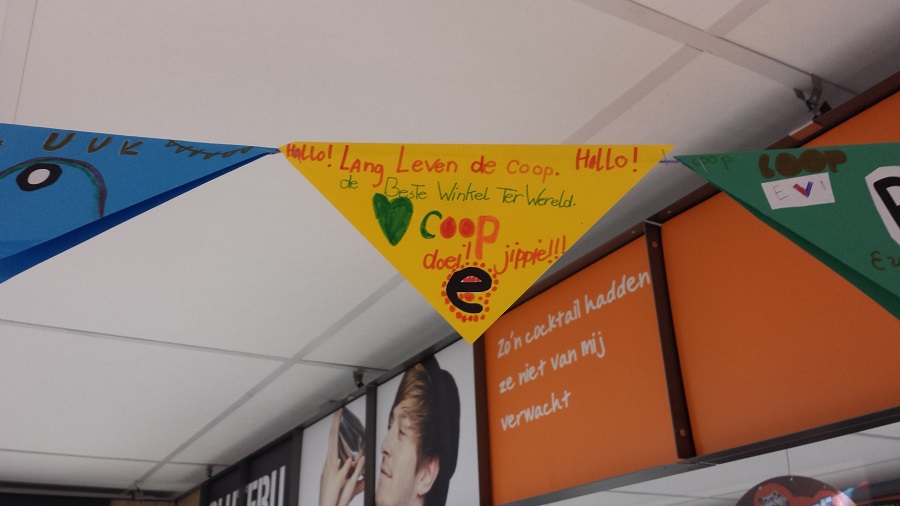 UUK
Hallo! Lang Leven de coop. Hallo!
de Beste Winkel Ter Wereld.
coop
doei! jippie!!!
e
coop
COOP
EVI
Zo'n cocktail hadden
ze niet van mij
verwacht